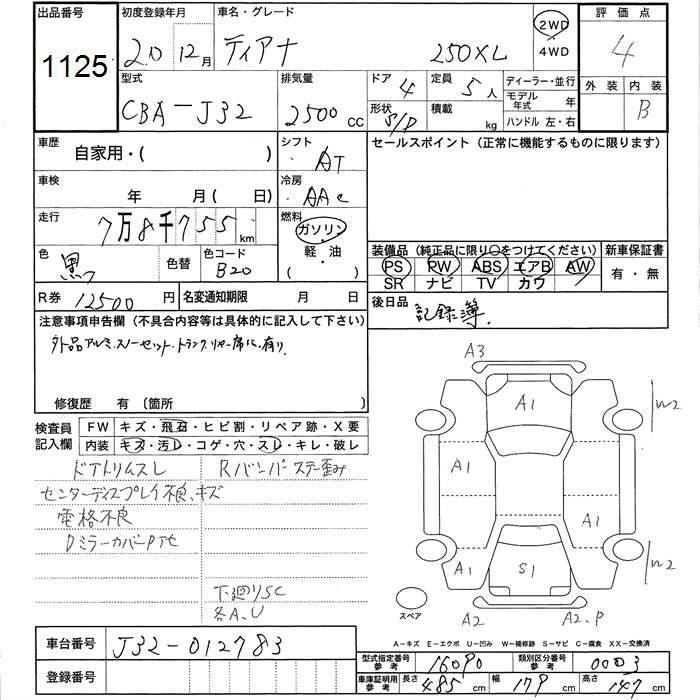 出品番号 初度登録年月 車名・グレード 評価点
1125 20 12月 ティアナ 250XL 2WD 4WD 4
型式 排気量 ドア 4 定員 5人 ディーラー・並行 外装 内装
CBA-J32 2500cc 形状 S/D 積載 kg モデル年式 年 B
ハンドル 左・右
車歴 自家用・( ) シフト AT セールスポイント (正常に機能するものに限ります)
車検 年 月 (日) 冷房 AAC
走行 7万8千755km 燃料 ガソリン 軽・油 ( )
色 黒 色替 色コード B20
装備品 (純正品に限り○をつけてください) 新車保証書
PS PW ABS エアB AW 有・無
SR ナビ TV カワ
R券 12500円 名変通知期限 月 日
後日品 記録簿
注意事項申告欄 (不具合内容等は具体的に記入して下さい)
外品アルミ.スノーセット.トランク.リヤー席に有り.
修復歴 有 〔箇所
検査員記入欄 FW キズ・飛石・ヒビ割・リペア跡・X要
内装 キズ・汚レ・コゲ・穴・スレ・キレ・破レ
ドアトリムスレ Rバンパーステー歪み
センターディスプレイ不良、キズ
電格不良
Dミラーカバー
下廻りSC
各A、U
A3
A1
W2
A1
A1
A1 S1 W2
スペア A2 A2、P
A-キズ E-エクボ U-凹み W-補修跡 S-サビ C-腐食 XX-交換済
車台番号 J32-012783
型式指定番号 参考 16090 類別区分番号 参考 0003
登録番号
車庫証明用 参考 長さ 485cm 幅 179cm 高さ 147cm